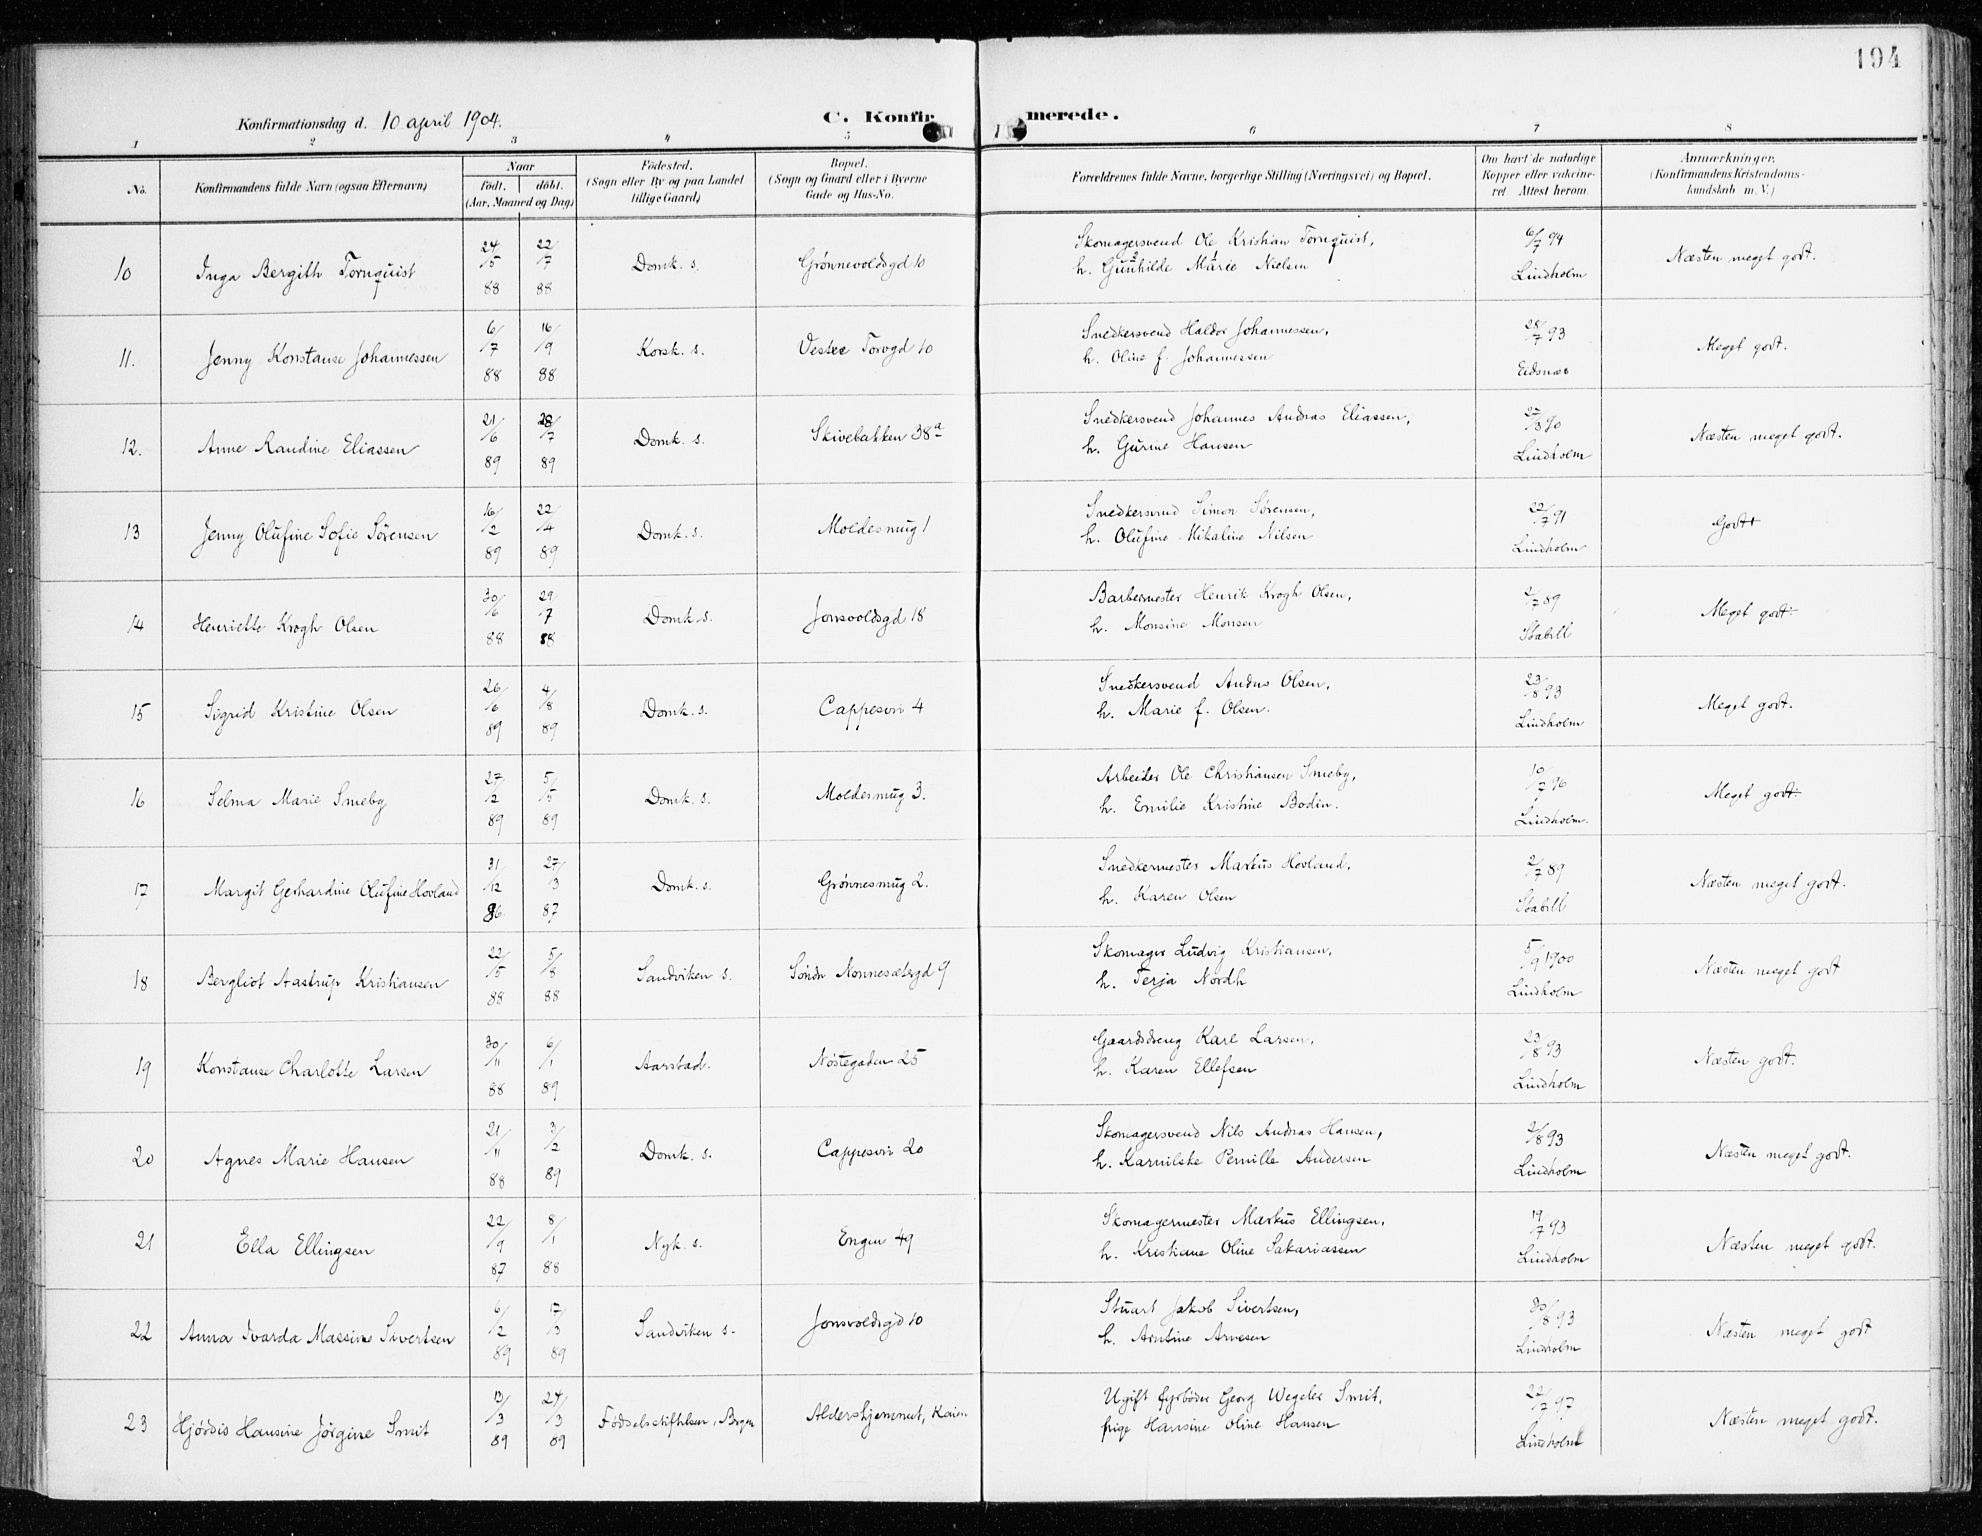 194
Konfirmationsdag d. 10 april 1904.
C. Konfirmerede.
1 2 3 4 5 6 7 8
No.
Konfirmandens fulde Navn (ogsaa Efternavn)
Naar
født. døbt.
(Aar, Maaned og Dag)
Fødested.
(Sogn eller By og paa Landet
tillige Gaard)
Bopæl.
(Sogn og Gaard eller i Byerne
Gade og Hus-No.
Forældrenes fulde Navne, borgerlige Stilling (Næringsvei) og Bopæl.
Om havt de naturlige
Kopper eller vakcine-
ret. Attest herom.
Anmærkninger.
(Konfirmandens Kristendoms-
kundskab m. V.)
10 Inga Bergith Tornquist 24/5 88 22/7 88 Domk. s. Grønnevoldsgd 10
Skomagersvend Ole Kristian Tornquist,
h. Gunhilde Marie Nielsen
6/7 94 Lindholm
Næsten meget godt.
11. Jenny Konstanse Johannessen 6/7 88 16/9 88 Korsk. s. Vestre Torvgd 10
Snedkersvend Haldor Johannessen,
h. Oline f. Johannessen
28/7 93 Eidsnæs
Meget godt.
12. Anne Randine Eliassen 21/6 89 28/7 89 Domk. s. Skivebakken 38a
Snedkersvend Johannes Andras Eliassen,
h. Gurine Hansen
27/3 90 Lindholm
Næsten meget godt.
13 Jenny Olufine Sofie Sørensen 16/2 89 22/4 89 Domk. s. Moldesmug 1
Snedkersvend Simon Sørensen,
h. Olufine Mikaline Nilsen
22/7 91 Lindholm
Godt
14 Henriette Krogh Olsen 30/6 88 29/7 88 Domk. s. Jonsvoldsgd 18
Barbermester Henrik Krogh Olsen,
h. Monsine Monsen
2/7 89 Stabell
Meget godt.
15 Sigrid Kristine Olsen 26/6 89 4/8 89 Domk. s. Cappesvei 4
Snedkersvend Andus Olsen,
h. Marie f. Olsen.
23/8 93 Lindholm
Meget godt.
16 Selma Marie Smeby 27/2 89 5/5 89 Domk. s. Moldesmug 3.
Arbeider Ole Christiansen Smeby,
h. Emilie Kristine Bodin.
10/7 96 Lindholm.
Meget godt.
17 Margit Gerhardine Olufine Hovland 31/12 86 27/3 87 Domk. s. Grønnesmug 2.
Snedkermester Markus Hovland,
h. Karen Olsen
2/7 89 Stabell
Næsten meget godt.
18 Bergliot Aastrup Kristiansen 22/5 88 5/8 88 Sandviken s. Søndr Nonnesætergd 9
Skomager Ludvig Kristiansen,
h. Terja Nordh
5/9 1900 Lindholm
Næsten meget godt
19 Konstanse Charlotte Larsen 30/11 88 6/1 89 Aarstad. Nøstegaden 25
Gaardsdreng Karl Larsen,
h. Karen Ellefsen
23/8 93 Lindholm
Næsten godt.
20 Agnes Marie Hansen 21/11 88 3/2 89 Domk. s. Cappesvei 20
Skomagersvend Nils Andras Hansen,
h. Karnilske Pernille Andersen
2/8 93 Lindholm
Næsten meget godt.
21 Ella Ellingsen 22/9 87 8/1 88 Nyk. s. Engen 49
Skomagermester Markus Ellingsen,
h. Kristiane Oline Sakariassen
19/7 93 Lindholm
Næsten meget godt.
22 Anna Ivarda Massine Sivertsen 6/2 89 17/3 89 Sandviken s. Jonsvoldsgd 10
Stuart Jakob Sivertsen,
h. Arntine Arnesen
30/8 93 Lindholm
Næsten meget godt
23 Hjørdis Hansine Jørgine Smit 13/3 89 24/3 89 Fødselsstiftelsen, Bergen Aldershjemmet, Kaien
Ugift fyrbøder Georg Wegeler Smit,
pige Hansine Oline Hansen
22/7 97 Lindholm
Næsten meget godt.